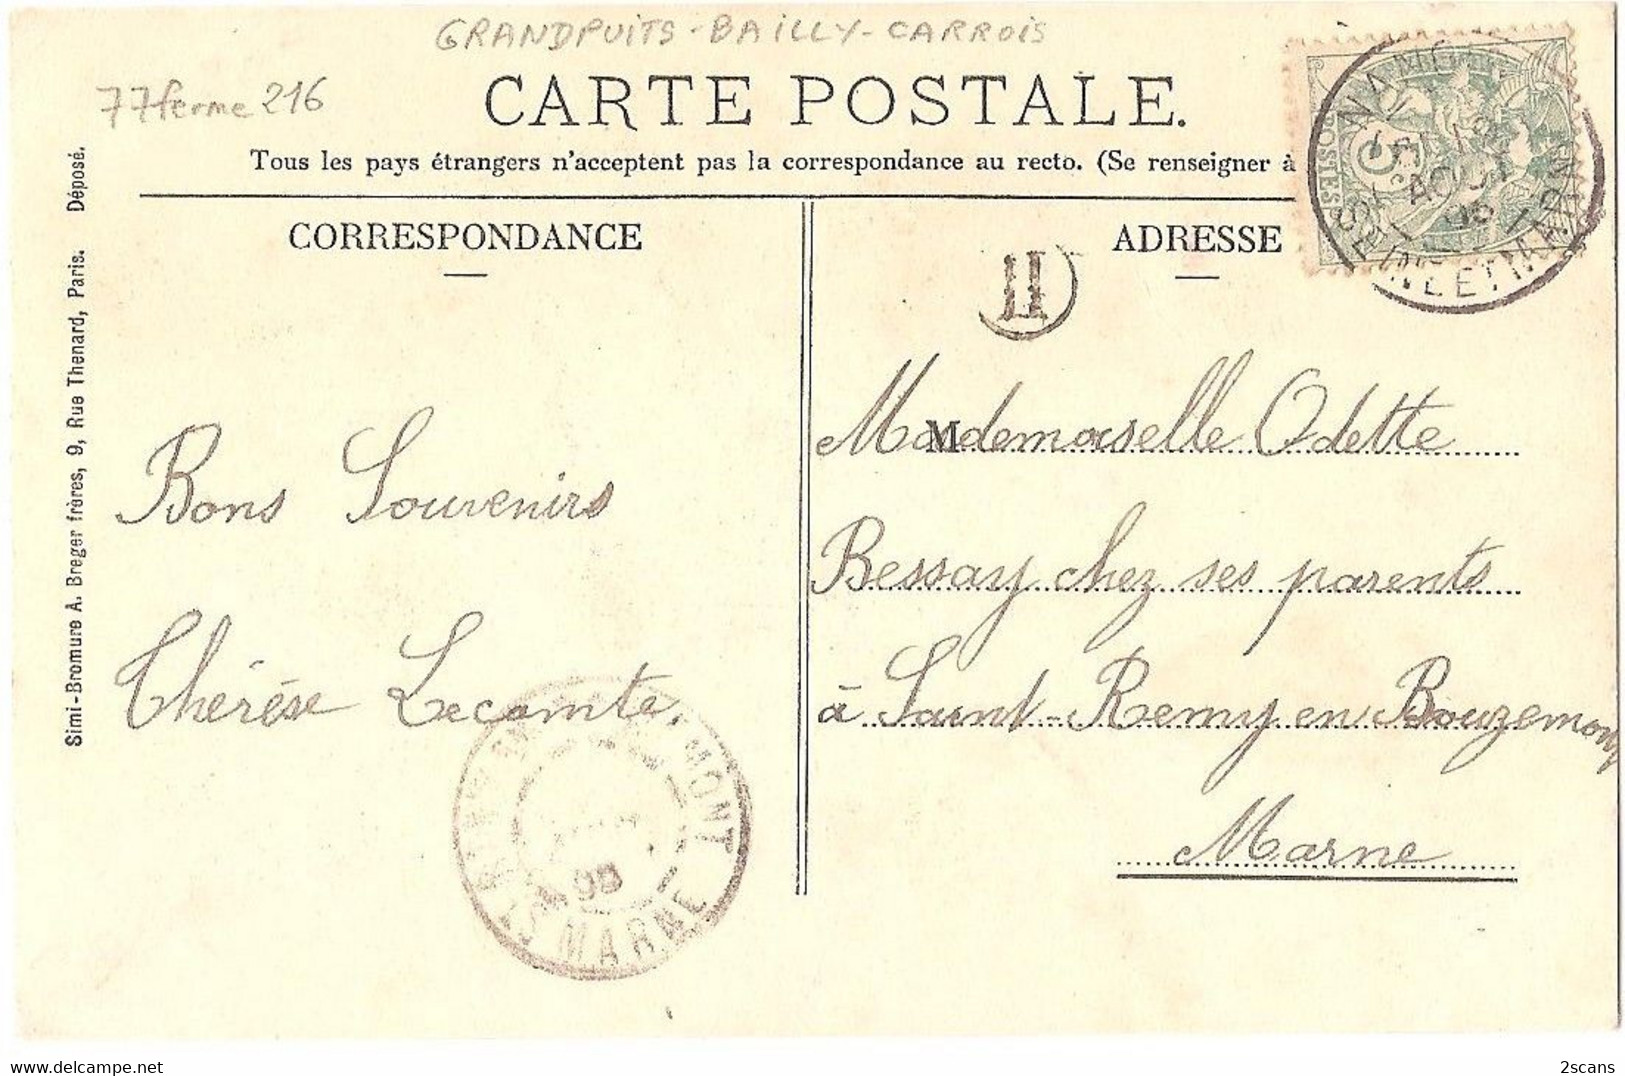 GRANDPUITS-BAILLY-CARROIS
77 ferme 216
CARTE POSTALE.
Tous les pays étrangers n'acceptent pas la correspondance au recto. (Se renseigner à
CORRESPONDANCE
ADRESSE
Simi-Bromure A. Breger frères, 9, Rue Thenard, Paris. Déposé.
SEINE ET MARNE
AOUT
POSTES
H
Bons Souvenirs
Thérèse Lecomte.
M
Mademoiselle Odette
Bessay chez ses parents
à Saint-Remy en Bouzemont
Marne
MONT
MARNE
2scans